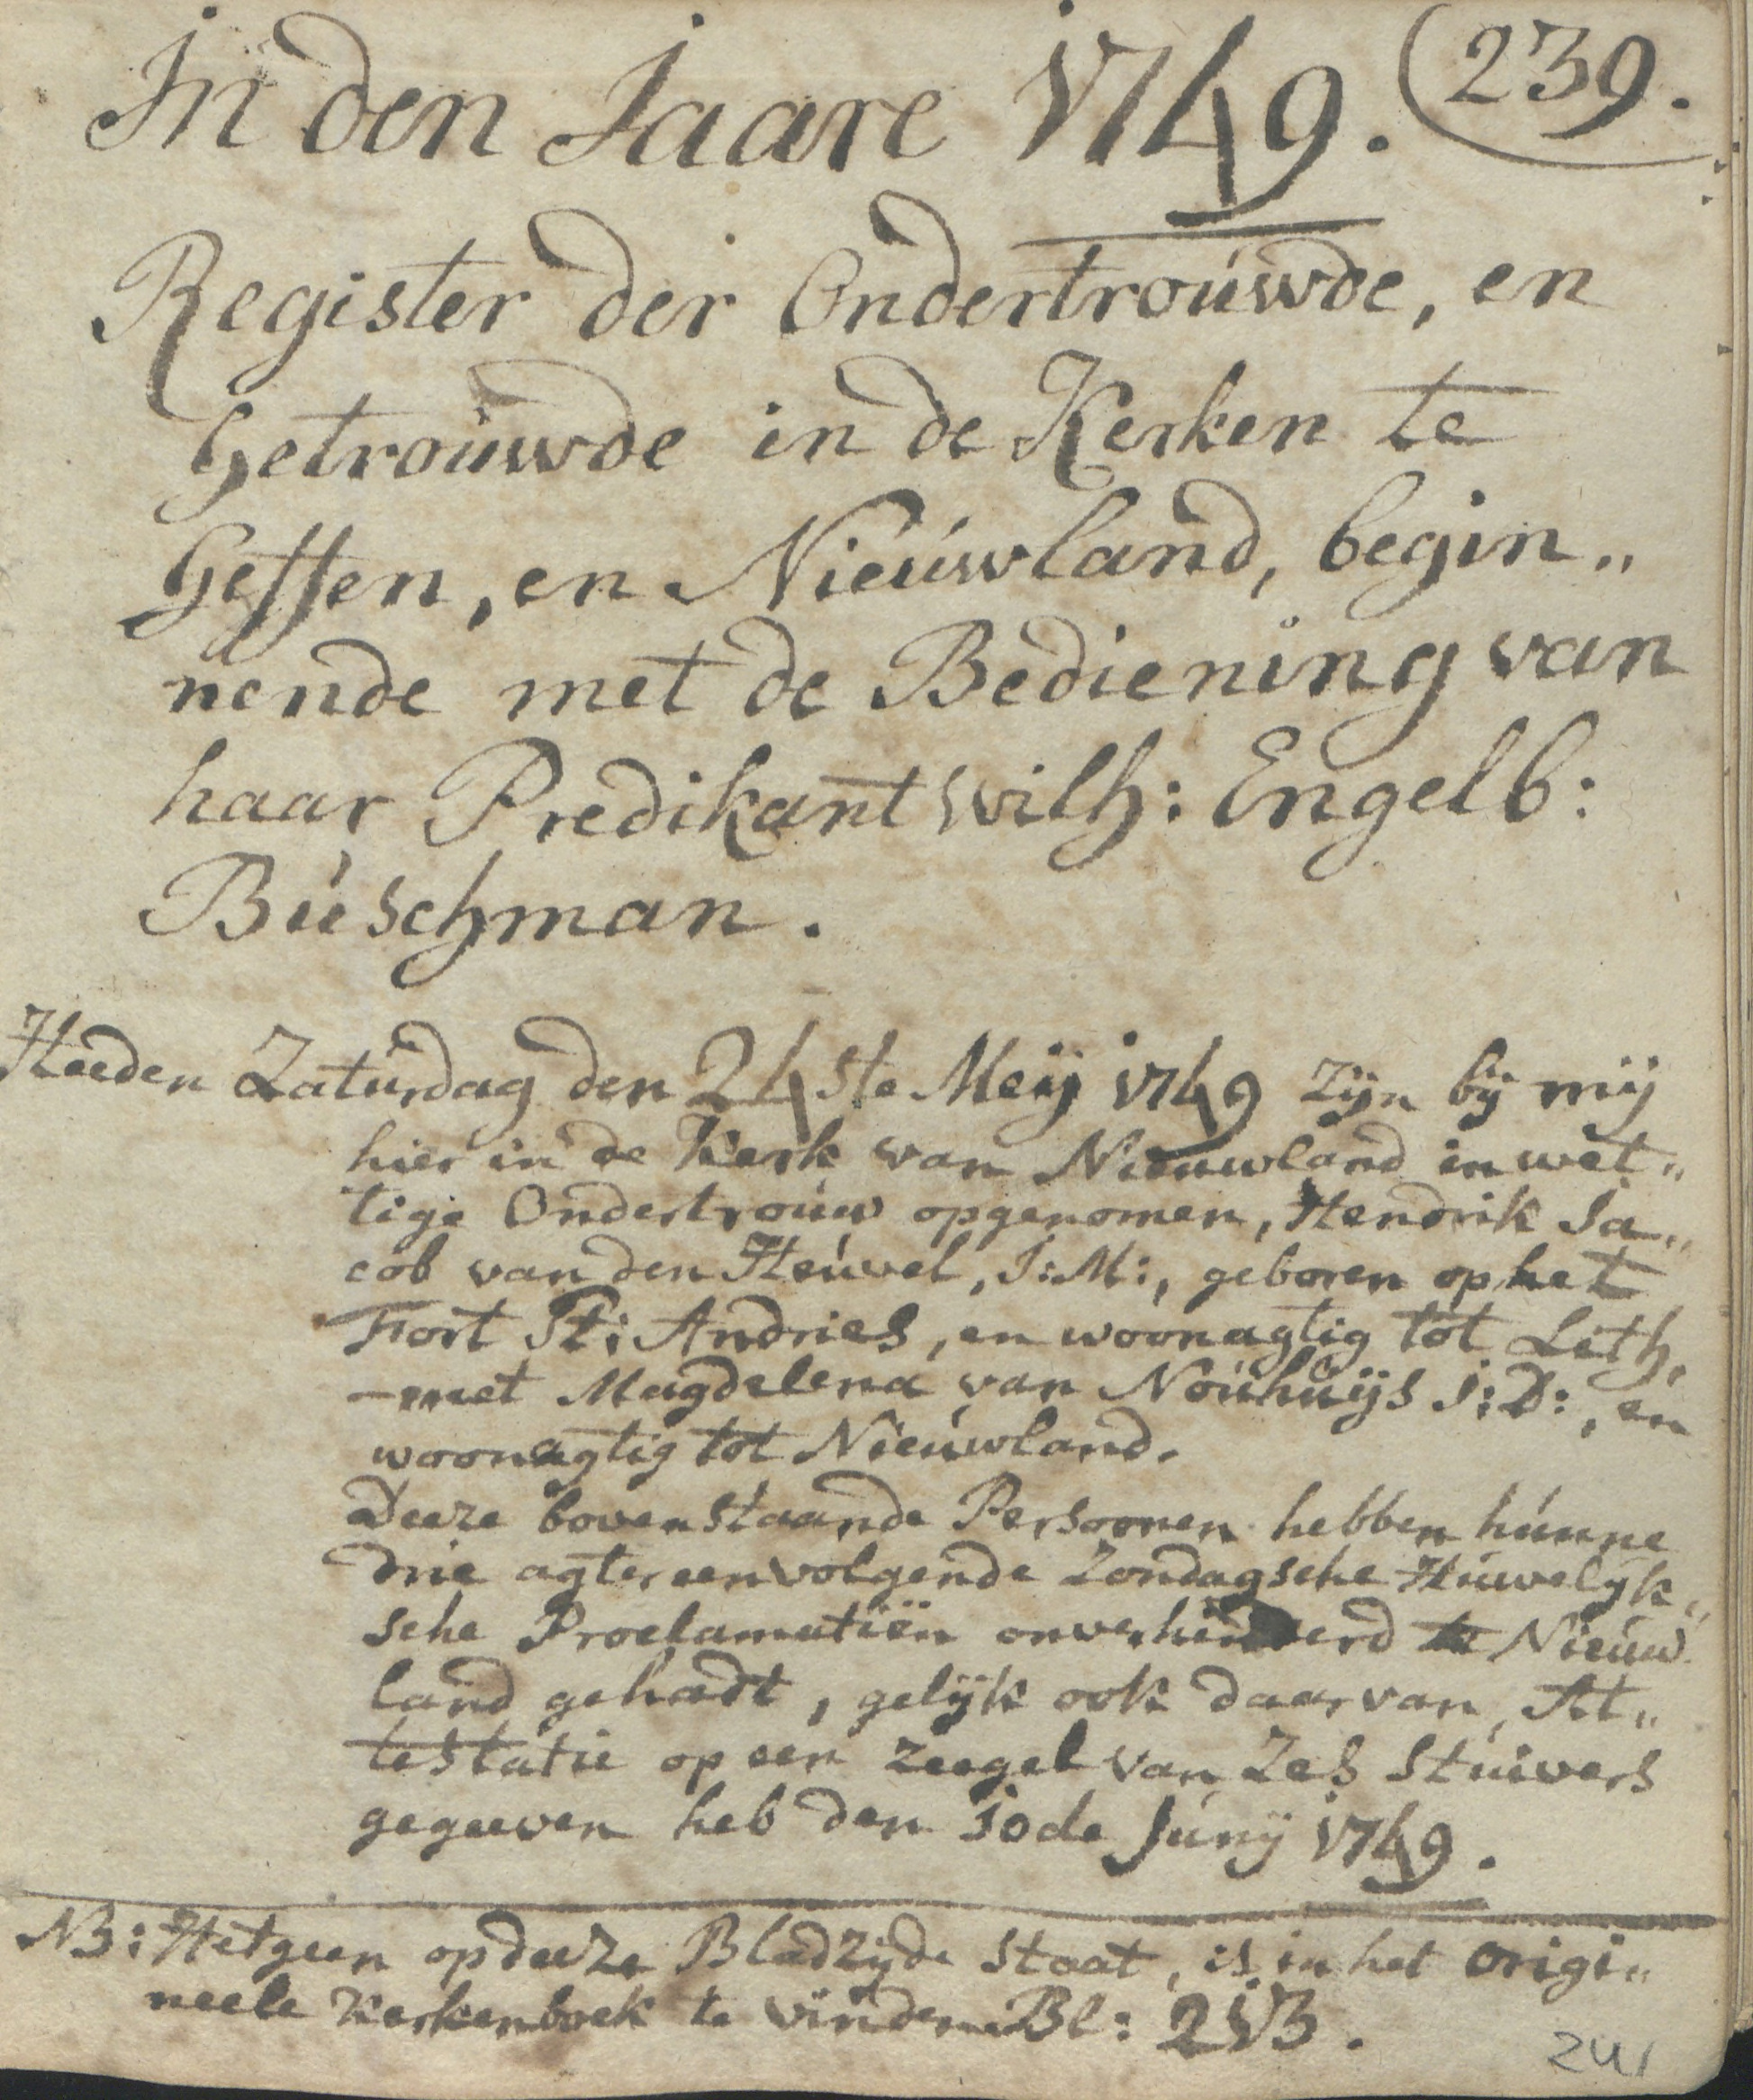 In den Jaare 1749. 239.
Register der Ondertrouwde, en
Getrouwde in de Kerken te
Geffen, en Nieuwland, begin„
nende met de Bediening van
haar Predikant Wilh: Engelb:
Buschman.
Heeden Zaturdag den 24ste Meij 1749 zijn bij mij
hier in de Kerk van Nieuwland in wet„
tige Ondertrouw opgenomen, Hendrik Ja„
cob van den Heuvel, J:M:, geboren op het
Fort St: Andries, en woonagtig tot Lith,
-met Magdelena van Nouhuijs J:D:, en
woonagtig tot Nieuwland.
Deeze bovenstaande Persoonen hebben hunne
drie agtereenvolgende Zondagsche Huwelijk„
sche Proclamatiën onverhinderd te Nieuw
land gehadt, gelijk ook daarvan, At„
testatie op een Zeegel van Zes Stuivers
gegeeven heb den 10de Junij 1749.
NB: Hetgeen op deeze Bladzijde staat, is in het origi„
neele Kerkenboek te vinden Bl: 213.
241